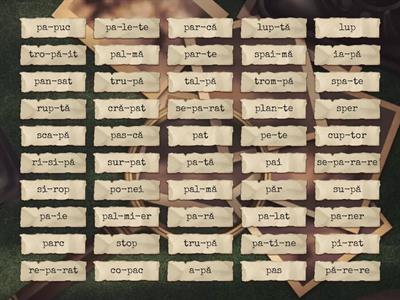 pa-puc pa-le-te par-că lup-tă lup
tro-pă-it pal-mă par-te spai-mă ia-pă
pan-sat tru-pă tal-pă trom-pă spa-te
rup-tă cră-pat se-pa-rat plan-te sper
sca-pă pas-că pat pe-te cup-tor
ri-si-pă sur-pat pa-tă pai se-pa-ra-re
si-rop po-nei pal-mă păr su-pă
pa-ie pal-mi-er pa-ră pa-lat pa-ner
parc stop tru-pă pa-ti-ne pi-rat
re-pa-rat co-pac a-pă pas pă-re-re